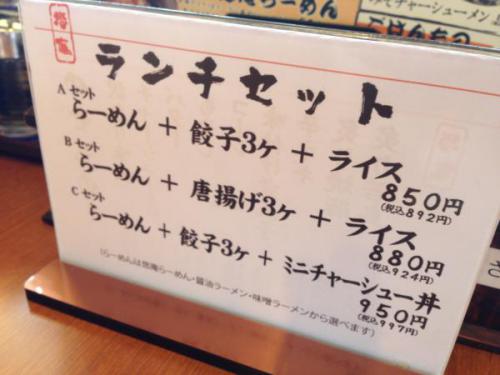 ランチセット
Aセット
らーめん + 餃子3ヶ + ライス
850円
(税込892円)
Bセット
らーめん + 唐揚げ3ヶ + ライス
880円
(税込924円)
Cセット
らーめん + 餃子3ヶ + ミニチャーシュー丼
950円
(税込997円)
(らーめんは悠庵らーめん・醤油ラーメン・味噌ラーメンから選べます)